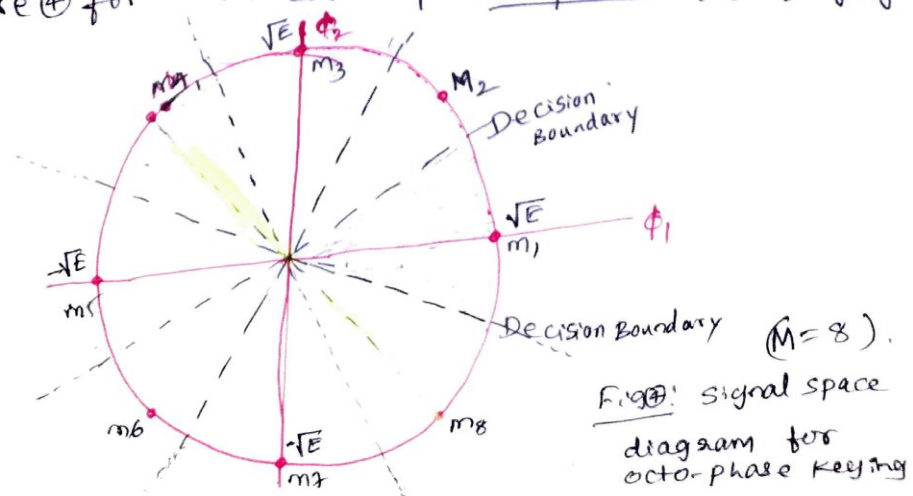 √E ϕ2
m3
M2
Decision
Boundary
√E
m1
ϕ1
-√E
m5
Decision Boundary (M=8).
Fig④: Signal space
diagram for
octo-phase keying
m6
m8
-√E
m7